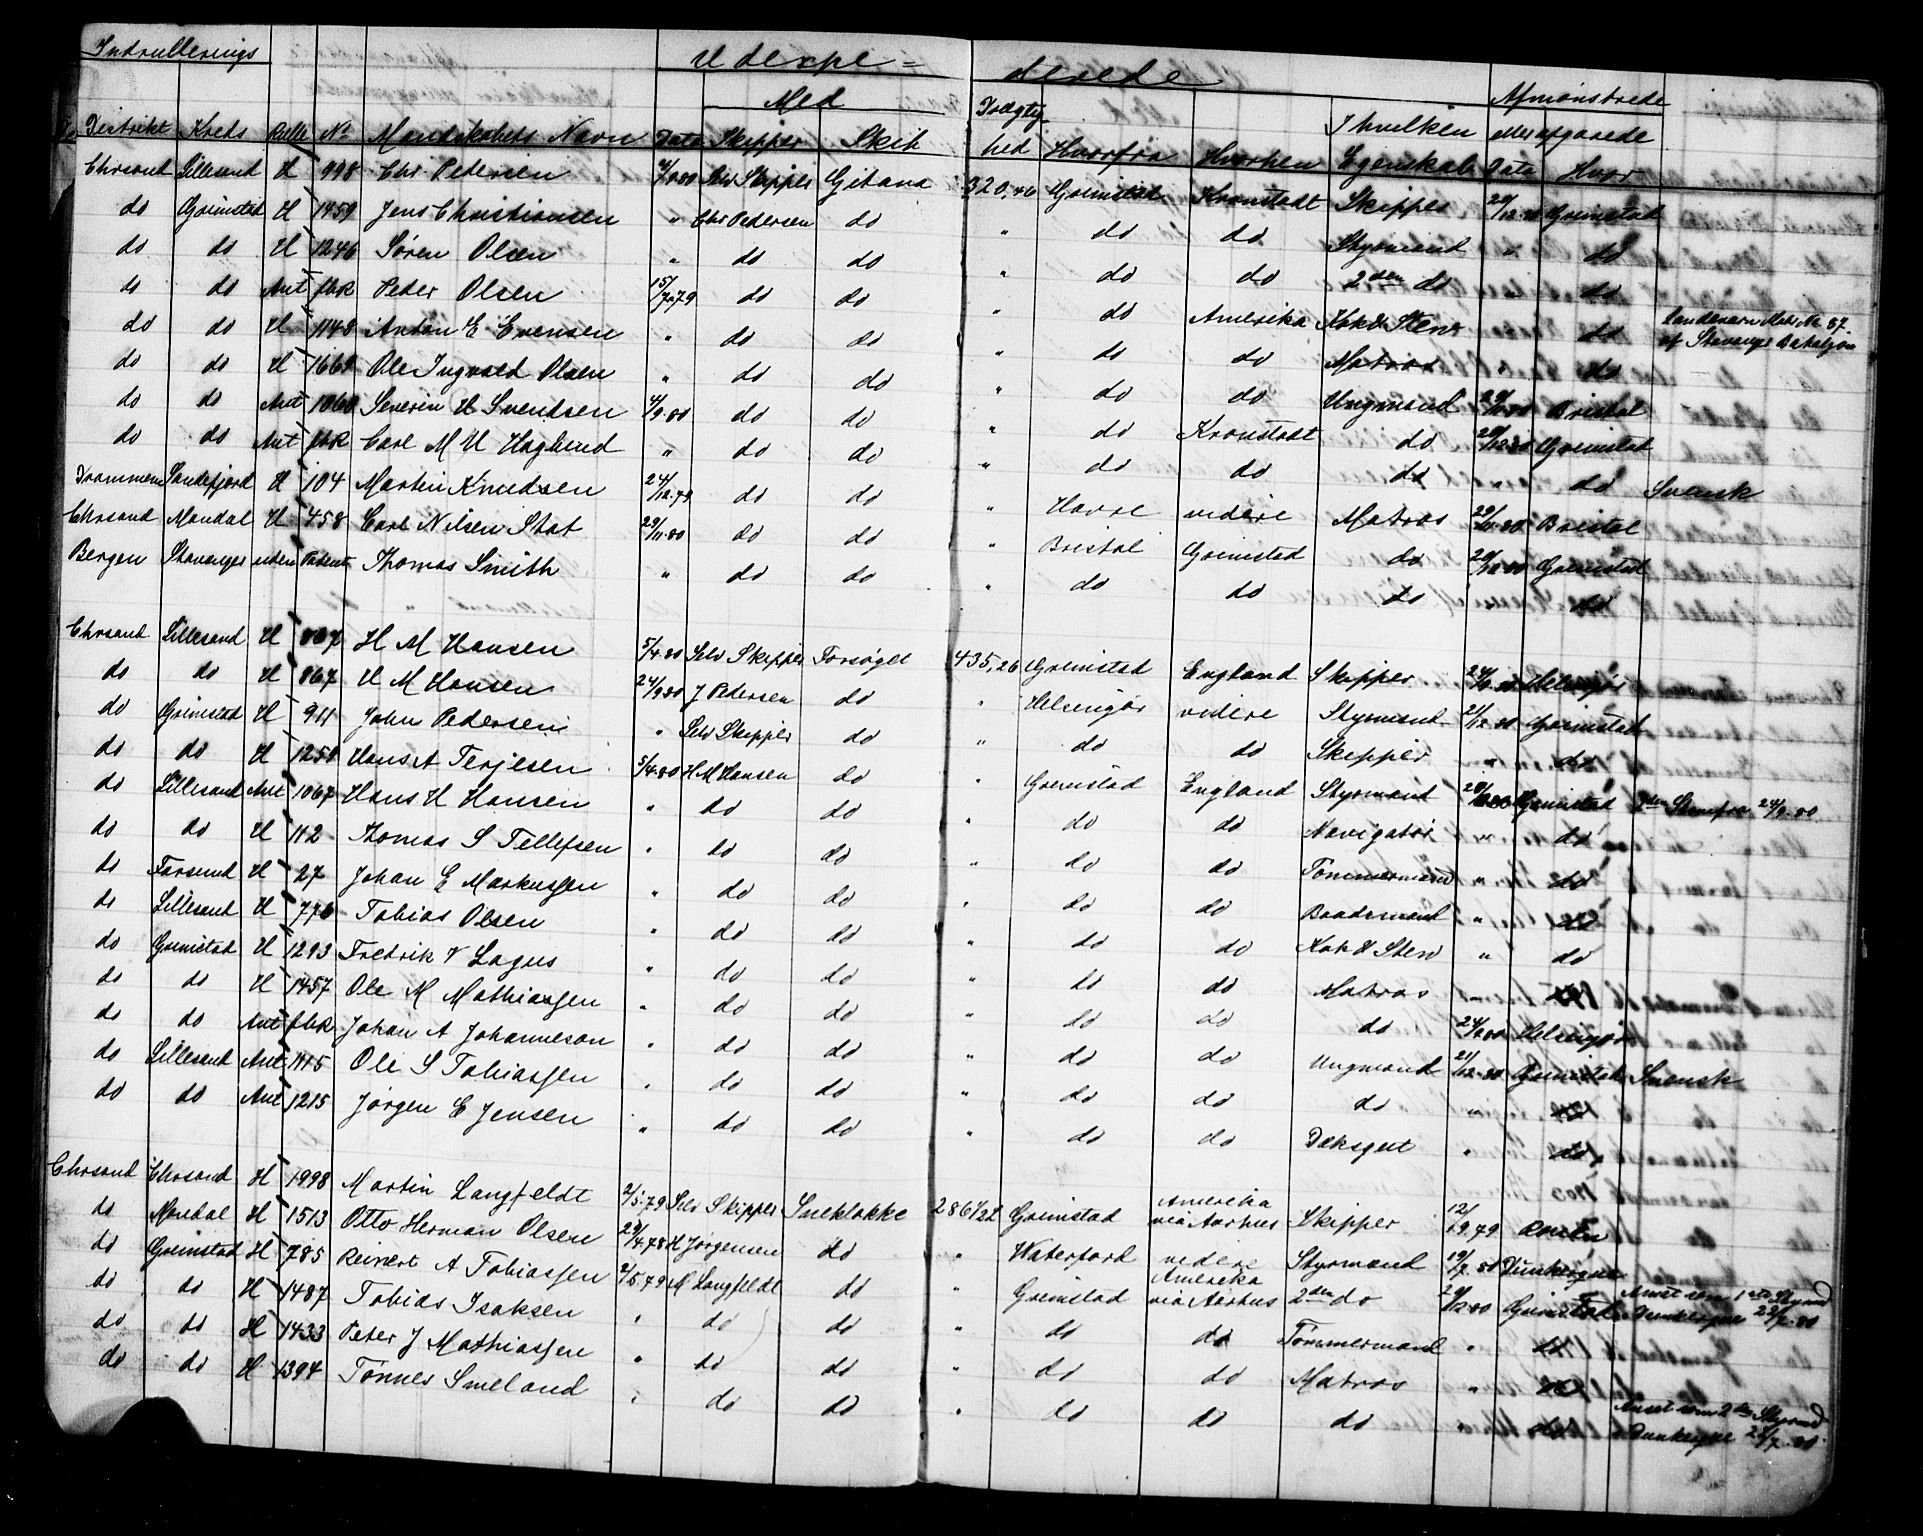 Indrullerings Udexpe= derede Afmønstrede
Med Drægtig- I hvilken eller afgaaede
Distrikt Kreds Rulle No Mandskabets Navn Dato Skipper Skib hed Hvorfra Hvorhen Egenskab Dato Hvor
Chrsand Lillesand H 998 Chr Pedersen 4/9.80 Selv Skipper Gitana 320,46 Grimstad Kronstadt Skipper 20/12.80 Grimstad
do Grimstad H 1459 Jens Christiansen " Chr Pedersen do " do do Styrmand " do
do do H 1246 Søren Olsen " do do " do do 2den do " do
do do Ant fbk Peder Olsen 15/7.79 do do " do Amerika Kok & Stew " do Landeværn Mdr No 87 af Stavanger Bataljon
do do H 1148 Anton E Evensen " do do " do do Matros " do
do do H 1660 Ole Ingvald Olsen " do do " do do Ungmand 29/11.80 Bristol
do do Ant 1060 Severin H Svendsen 4/9.80 do do " do Kronstadt do 20/12.80 Grimstad
do do Ant fbk Carl M U Haglund " do do " do do do " do Svensk
Drammen Sandefjord H 104 Martin Knudsen 24/12.79 do do " Havre videre Matros 29/11.80 Bristol
Chrsand Mandal H 458 Carl Nilsen Stat 29/11.80 do do " Bristol Grimstad do 20/12.80 Grimstad
Bergen Stavanger uden Patent Thomas Smith " do do " do do do " do
Chrsand Lillesand H 867 H M Hansen 5/4.80 Selv Skipper Forsøget 435,26 Grimstad England Skipper 24/9.80 Helsingør
do do H 867 H M Hansen 24/9.80 J Pedersen do " Helsingør videre Styrmand 21/12.80 Grimstad
do Grimstad H 911 John Pedersen " Selv Skipper do " do do Skipper " do
do do H 1250 Hans A Terjesen 5/4.80 H M Hansen do " Grimstad England Styrmand Grimstad 2den Styrm fra 24/9.80
do Lillesand Ant 1067 Hans H Hansen " do do " do do Navigatør " do
do do H 112 Thomas S Tellefsen " do do " do do Tømmermand " do
do Farsund H 27 Johan E Markussen " do do " do do Baadsmand " do
do Lillesand H 776 Tobias Olsen " do do " do do Kok & Stew " do
do Grimstad H 1293 Fredrik V Lagus " do do " do do Matros " do
do do H 1457 Ole M Mathiassen " do do " do do do 24/9.80 Helsingør
do do Ant fbk Johan A Johanneson " do do " do do Ungmand 21/12.80 Grimstad Svensk
do Lillesand Ant 1115 Ole S Tobiassen " do do " do do do " do
do do Ant 1215 Jørgen E Jensen " do do " do do Dæksgut " do
Chrsand Chrsand H 1998 Martin Langfeldt 2/5.79 Selv Skipper Sneklokke 286 1/2 Grimstad Amerika via Aarhus Skipper 12/19.79
do Mandal H 1513 Otto Herman Olsen 29/4.78 H Jørgensen do " Waterford videre Styrmand 19/7.80 Dunkerque
do Grimstad H 785 Reinert A Tobiassen 2/5.79 M Langfeldt do " Grimstad Amerika via Aarhus 2den do 20/12.80 Grimstad Anset som 1ste Styrmd Dunkerque 22/7.80
do do H 1487 Tobias Isaksen " do do " do do Tømmermand " do
do do H 1433 Peter J Mathiassen " do do " do do Matros " do
do do H 1394 Tønnes Smeland " do do " do do do " do Anset som 2den Styrmd i Dunkerque 22/7.80